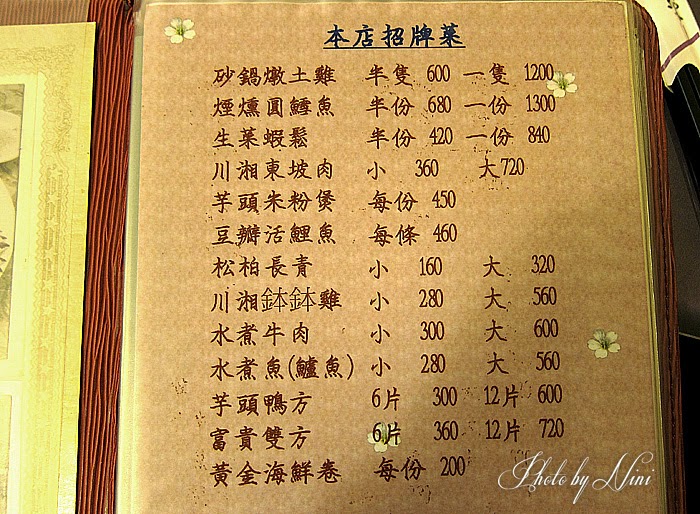 本店招牌菜
砂鍋燉土雞 半隻 600 一隻 1200
煙燻圓鱈魚 半份 680 一份 1300
生菜蝦鬆 半份 420 一份 840
川湘東坡肉 小 360 大 720
芋頭米粉煲 每份 450
豆瓣活鯉魚 每條 460
松柏長青 小 160 大 320
川湘缽缽雞 小 280 大 560
水煮牛肉 小 300 大 600
水煮魚(鱸魚) 小 280 大 560
芋頭鴨方 6片 300 12片 600
富貴雙方 6片 360 12片 720
黃金海鮮卷 每份 200
Photo by Nini